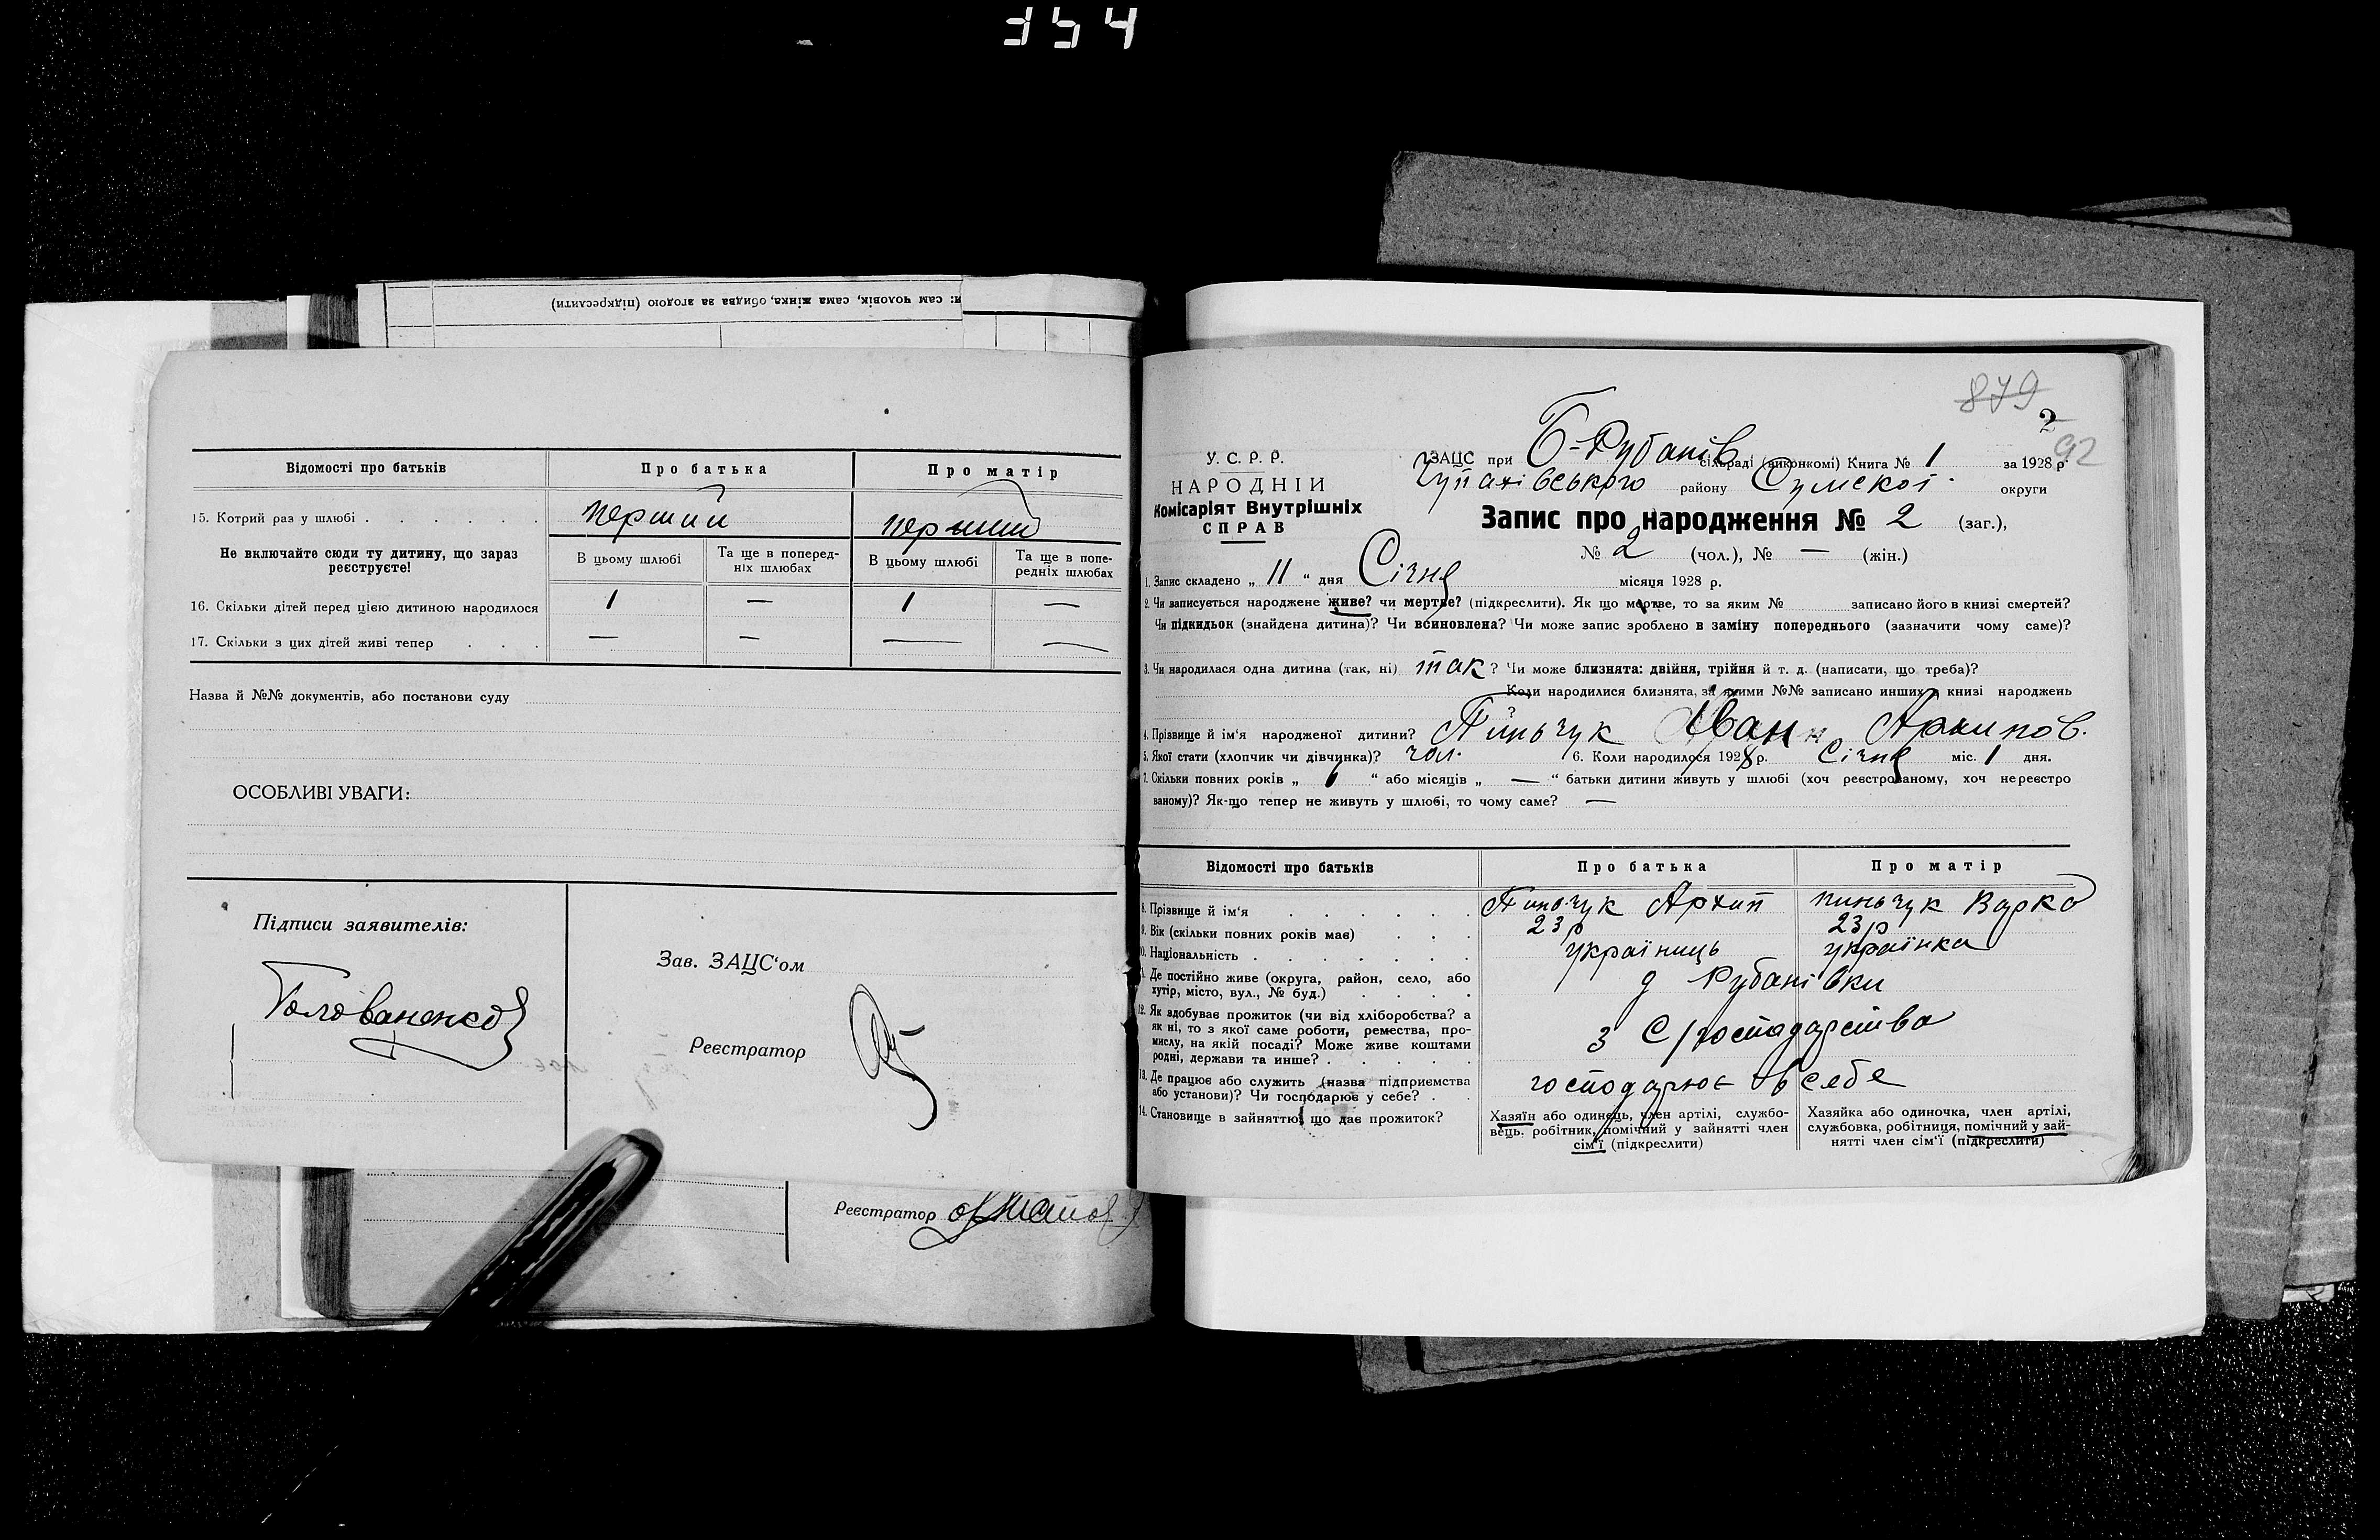 354
и: сам чоловік, сама жінка, обидва за згодою (підкреслити)
Відомості про батьків Про батька Про матір
15. Котрий раз у шлюбі . . . . . . . перший перший
Не включайте сюди ту дитину, що зараз реєструєте!
В цьому шлюбі Та ще в поперед-ніх шлюбах В цьому шлюбі Та ще в попе-редніх шлюбах
16. Скільки дітей перед цією дитиною народилося 1 — 1 —
17. Скільки з цих дітей живі тепер . . . — — — —
Назва й №№ документів, або постанови суду
ОСОБЛИВІ УВАГИ:
Підписи заявителів:
Голованенко
Зав. ЗАЦС‘ом
Реєстратор
Реєстратор
879
2
92
У. С. Р. Р.
НАРОДНІЙ
Комісаріят Внутрішніх
СПРАВ
ЗАЦС при Б-Рубанів сільраді (виконкомі) Книга № 1 за 1928 р.
Чупахівського району Сумської округи
Запис про народження № 2 (заг.),
№ 2 (чол.), № — (жін.)
1. Запис складено „ 11 “ дня Січня місяця 1928 р.
2. Чи записується народжене живе? чи мертве? (підкреслити). Як що мертве, то за яким № записано його в книзі смертей?
Чи підкидьок (знайдена дитина)? Чи всиновлена? Чи може запис зроблено в заміну попереднього (зазначити чому саме)?
3. Чи народилася одна дитина (так, ні) так ? Чи може близнята: двійня, трійня й т. д. (написати, що треба)?
Коли народилися близнята, за якими №№ записано инших в книзі народжень
?
4. Прізвище й ім‘я народженої дитини? Пиньчук Иван Архипов.
5. Якої стати (хлопчик чи дівчинка)? чол. 6. Коли народилося 1928 р. Січня міс. 1 дня.
7. Скільки повних років „ “ або місяців „ — “ батьки дитини живуть у шлюбі (хоч реєстрованому, хоч нереєстро
ваному)? Як-що тепер не живуть у шлюбі, то чому саме? —
Відомості про батьків Про батька Про матір
8. Прізвище й ім‘я . . . . . . Пиньчук Архип пиньчук Варка
9. Вік (скільки повних років має) . . . 23 р 23 р
10. Національність . . . . . . . українць українка
11. Де постійно живе (округа, район, село, або
хутір, місто, вул., № буд.) . . . . д Рубанівки
12. Як здобуває прожиток (чи від хліборобства? а
як ні, то з якої саме роботи, ремества, про-
мислу, на якій посаді? Може живе коштами
родні, держави та инше? . . . . . з С/господарства
13. Де працює або служить (назва підприємства
або установи)? Чи господарює у себе? . . господарює в себе
14. Становище в зайняттю, що дає прожиток?
Хазяїн або одинець, член артілі, службо-
вець, робітник, помічний у зайнятті член
сім‘ї (підкреслити)
Хазяйка або одиночка, член артілі,
службовка, робітниця, помічний у зай-
нятті член сім‘ї (підкреслити)